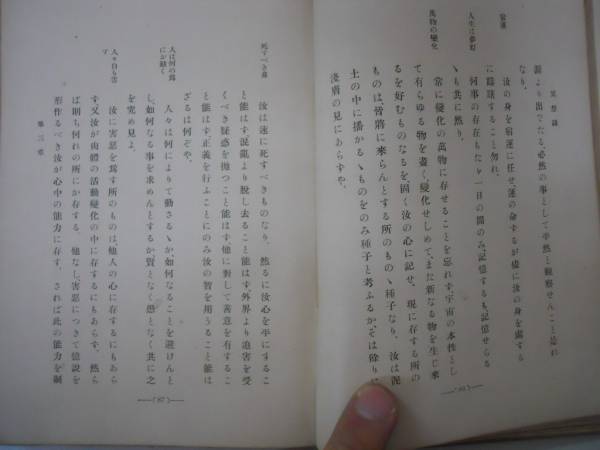 冥想録
源より出でたる、必然の事として平然と觀察せんことを忘れ
なり。
宿運
汝の身を宿運に任せ、運の命ずるが儘に汝の身を處する
に躊躇すること勿れ。
人生は夢幻
何事の存在もたゞ一日の間のみ、記憶するも、記憶せらる
ゝも共に然り。
萬物の變化
常に變化の萬物に存せることを忘れず、宇宙の本性とし
て有らゆる物を盡く變化せしめて、また新なる物を生じ來
るを好むものなるを固く汝の心に記せ、現に存する所の
ものは、皆將に來らんとする所のものゝ種子なり、汝は泥
土の中に播かるゝものをのみ種子と考ふるか、そは餘りに
淺膚の見にあらずや。
―(86)―
死すべき命
汝は速に死すべきものなり、然るに汝心を平にするこ
と能はず、混亂より脱し去ること能はず、外界より迫害を受
くべき疑惑を抛つこと能はず、他に對して善意を有するこ
と能はず、正義を行ふことにのみ汝の智を用うること能は
ざるは何ぞや。
人は何の爲
に動く
人々は何によりて動さるゝか、如何なることを避けんと
し、如何なる事を求めんとするか、賢となく愚となく共に之
を究め見よ。
人々自ら害
す
汝に害惡を爲す所のものは、他人の心に存するにもあら
ず、又汝が肉體の活動變化の中に存するにもあらず、然ら
ば則ち何れの所にか存する、他なし、害惡につきて憶説を
形作るべき汝が心中の能力に存す、されば此の能力を制
第四章
―(87)―